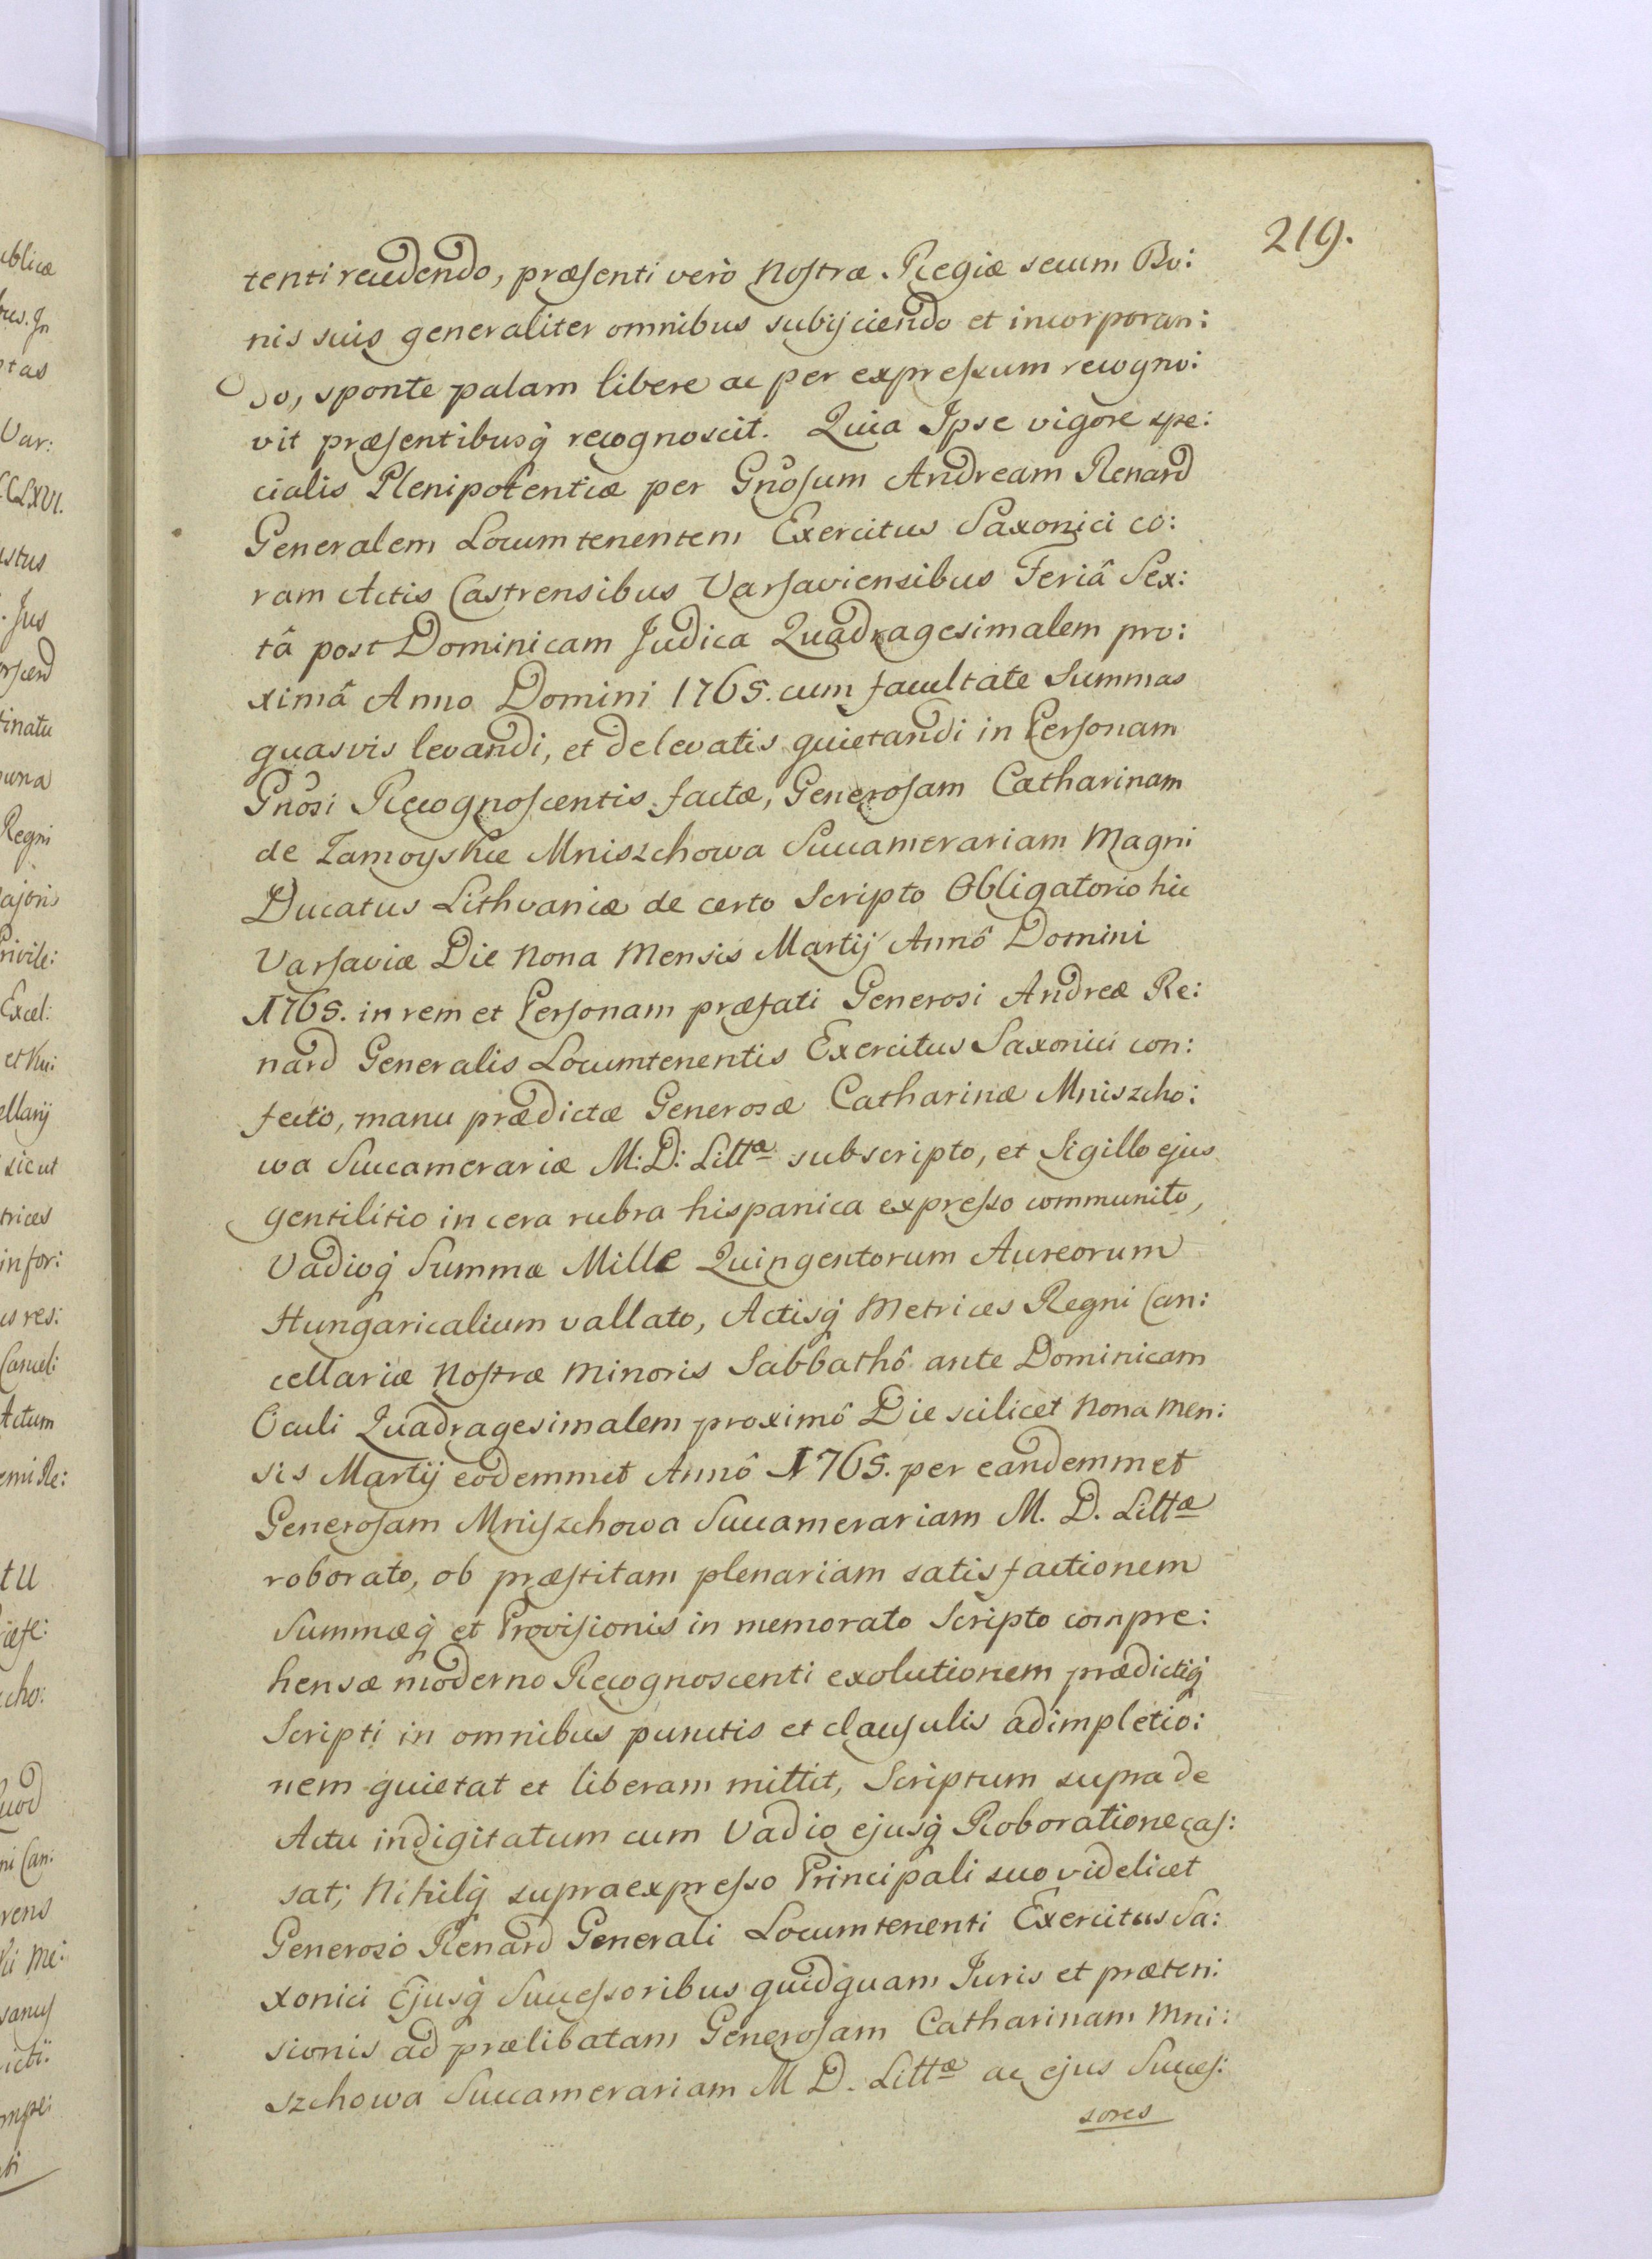 219.
tenti recedendo, præsenti verò Nostræ Regiæ secum Bo:
nis suis generaliter omnibus subijciendo et incorporan:
do, sponte palam libere ac per expressum recogno:
vit præsentibusq̃ recognoscit. Quia Ipse vigore spe:
cialis Plenipotentiæ per Gñosum Andream Renard
Generalem Locumtenentem Exercitus Saxonici co:
ram Actis Castrensibus Varsaviensibus Feriâ Sex:
tâ post Dominicam Judica Quadragesimalem pro:
ximâ Anno Domini 1765. cum facultate Summas
quasvis levandi, et de levatis quietandi in Personam
Gñosi Recognoscentis factæ, Generosam Catharinam
de Zamoyskie Mniszchowa Succamerariam Magni
Ducatus Lithvaniæ de certo Scripto Obligatorio hic
Varsaviæ Die Nona Mensis Martij Annô Domini
1765. in rem et Personam præfati Generosi Andreæ Re:
nard Generalis Locumtenentis Exercitus Saxonici con:
fecto, manu prædictæ Generosæ Catharinæ Mniszcho:
wa Succamerariæ M: D: Littæ subscripto, et Sigillo ejus
gentilitio in cera rubra hispanica expresso communito,
Vadioq̃ Summæ Mille Quingentorum Aureorum
Hungaricalium vallato, Actisq̃ Metrices Regni Can:
cellariæ Nostræ Minoris Sabbathô ante Dominicam
Oculi Quadragesimalem proximô Die scilicet Nona Men:
sis Martij eodemmet Annô 1765. per eandemmet
Generosam Mniszchowa Succamerariam M. D. Littæ
roborato, ob præstitam plenariam satisfactionem
Summæq̃ et Provisionis in memorato Scripto compre:
hensæ moderno Recognoscenti exolutionem prædictiq̃
Scripti in omnibus punctis et clausulis adimpletio:
nem quietat et liberam mittit, Scriptum supra de
Actu indigitatum cum Vadio ejusq̃ Roboratione cas:
sat; Nihilq̃ supraexpresso Principali suo videlicet
Generoso Renard Generali Locumtenenti Exercitus Sa:
xonici Ejusq̃ Successoribus quidquam Juris et præten:
sionis ad prælibatam Generosam Catharinam Mni:
szchowa Succamerariam M D. Littæ ac ejus Succes:
sores